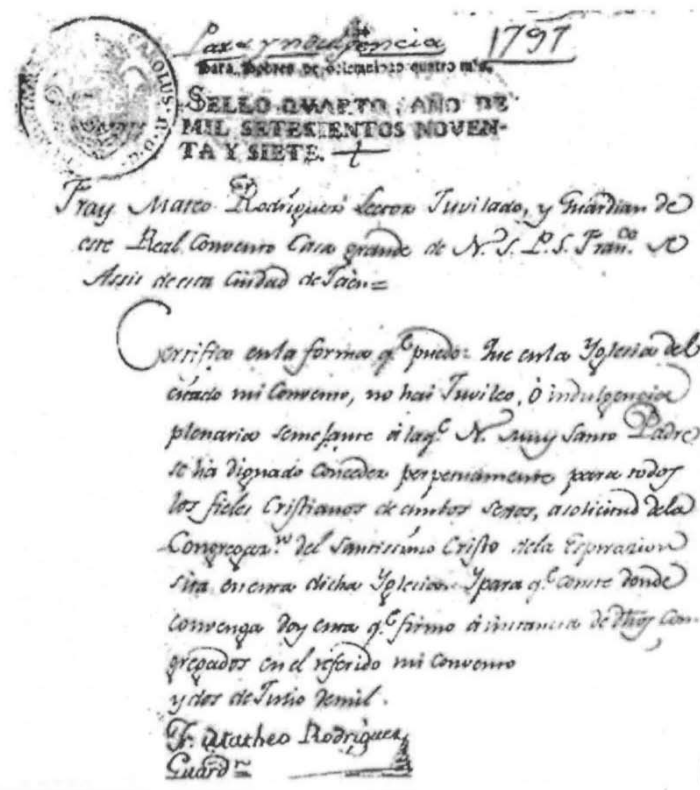 Para yndulgencia 1797
Para Pobres de solemnidad quatro mrs.
SELLO QVARTO, AÑO DE
MIL SETESIENTOS NOVEN-
TA Y SIETE.
CAROLUS IV D.G.
Fray Mateo Rodriguez Lector Juvilado, y Guardian de
este Real Convento Casa grande de N. S. P. S. Franco. de
Assis de esta Ciudad de Jaen=
Certifico en la forma qe. puedo: Que en la Yglesia del
citado mi Convento, no hai Juvileo, ó indulgencia
plenaria semejante á la qe. N. muy Santo Padre
se ha dignado conceder perpetuamente para todos
los fieles Cristianos de ambos sexos, a solicitud de la
Congregazn. del Santissimo Cristo de la Espirazion
sita en esta dicha Yglesia. Y para qe. conste donde
convenga doy esta qe. firmo á instancia de dhos Con-
gregados en el referido mi Convento
y dos de Julio de mil.
Fr. Matheo Rodriguez
Guardn.